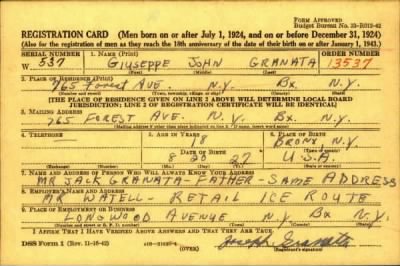 FORM APPROVED
Budget Bureau No. 33-R012-42
REGISTRATION CARD (Men born on or after July 1, 1924, and on or before December 31, 1924)
(Also for the registration of men as they reach the 18th anniversary of the date of their birth on or after January 1, 1943.)
SERIAL NUMBER 1. NAME (Print) ORDER NUMBER
W 537 GIUSEPPE JOHN GRANATA 13537
(First) (Middle) (Last)
2. PLACE OF RESIDENCE (Print)
765 Forest Ave N.Y. Bx. N.Y.
(Number and street) (Town, township, village, or city) (County) (State)
[THE PLACE OF RESIDENCE GIVEN ON LINE 2 ABOVE WILL DETERMINE LOCAL BOARD
JURISDICTION; LINE 2 OF REGISTRATION CERTIFICATE WILL BE IDENTICAL]
3. MAILING ADDRESS
765 FOREST AVE. N.Y. BX N.Y.
(Mailing address if other than place indicated on line 2. If same, insert word same)
4. TELEPHONE 5. AGE IN YEARS 6. PLACE OF BIRTH
18 BRONX N.Y.
DATE OF BIRTH
8 20
U.S.A.
7. NAME AND ADDRESS OF PERSON WHO WILL ALWAYS KNOW YOUR ADDRESS
MR JACK GRANATA-FATHER-SAME ADDRESS
8. EMPLOYER'S NAME AND ADDRESS
MR WATELL - RETAIL ICE ROUTE
9. PLACE OF EMPLOYMENT OR BUSINESS
LONGWOOD AVENUE N.Y. BX N.Y.
(Number and street or R. F. D. number) (Town) (County) (State)
I AFFIRM THAT I HAVE VERIFIED ABOVE ANSWERS AND THAT THEY ARE TRUE.
DSS Form 1 (Rev. 11-16-42) (OVER) Joseph Granata
(Registrant's signature)